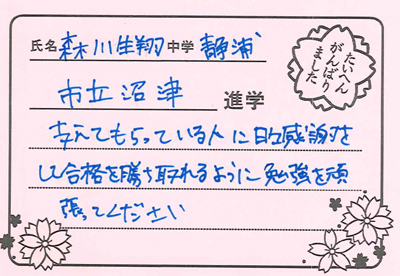 氏名 森川生翔 中学 静浦
市立沼津 進学
たいへん
がんばり
ました
支えてもらっている人に日々感謝を
して合格を勝ち取れるように勉強を頑
張ってください